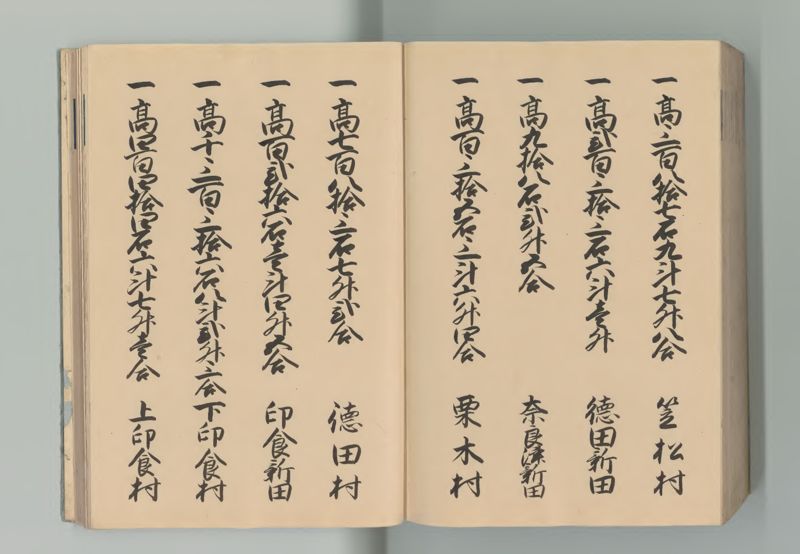 一高三百八拾七石九斗七升八合 笠松村
一高弐百三拾三石六斗壱升 徳田新田
一高九拾八石弐升五合 奈良津新田
一高百三拾五石三斗六升四合 栗木村
一高七百八拾三石七升弐合 徳田村
一高百弐拾六石壱斗四升五合 印食新田
一高千三百三拾六石八斗弐升三合 下印食村
一高四百四拾四石六斗七升壱合 上印食村